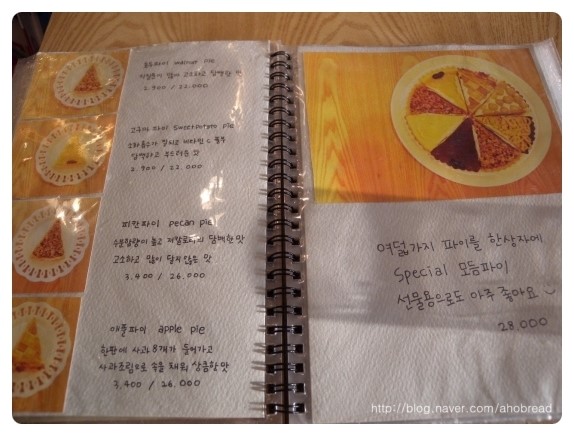 호두파이 walnut pie
2.900 / 22.000
고구마 파이 sweetpotato pie
소화흡수가 잘되고 비타민 C 풍부
담백하고 부드러운 맛
2.900 / 22.000
피칸파이 pecan pie
수분함량이 높고 저칼로리의 담백한맛
고소하고 많이 달지않은 맛
3.400 / 26.000
애플파이 apple pie
한판에 사과 8개가 들어가고
사과조림으로 속을 채워 상큼한맛
3,400 / 26.000
여덟가지 파이를 한상자에
Special 모듬파이
선물용으로도 아주 좋아요
28.000
http://blog.naver.com/ahobread